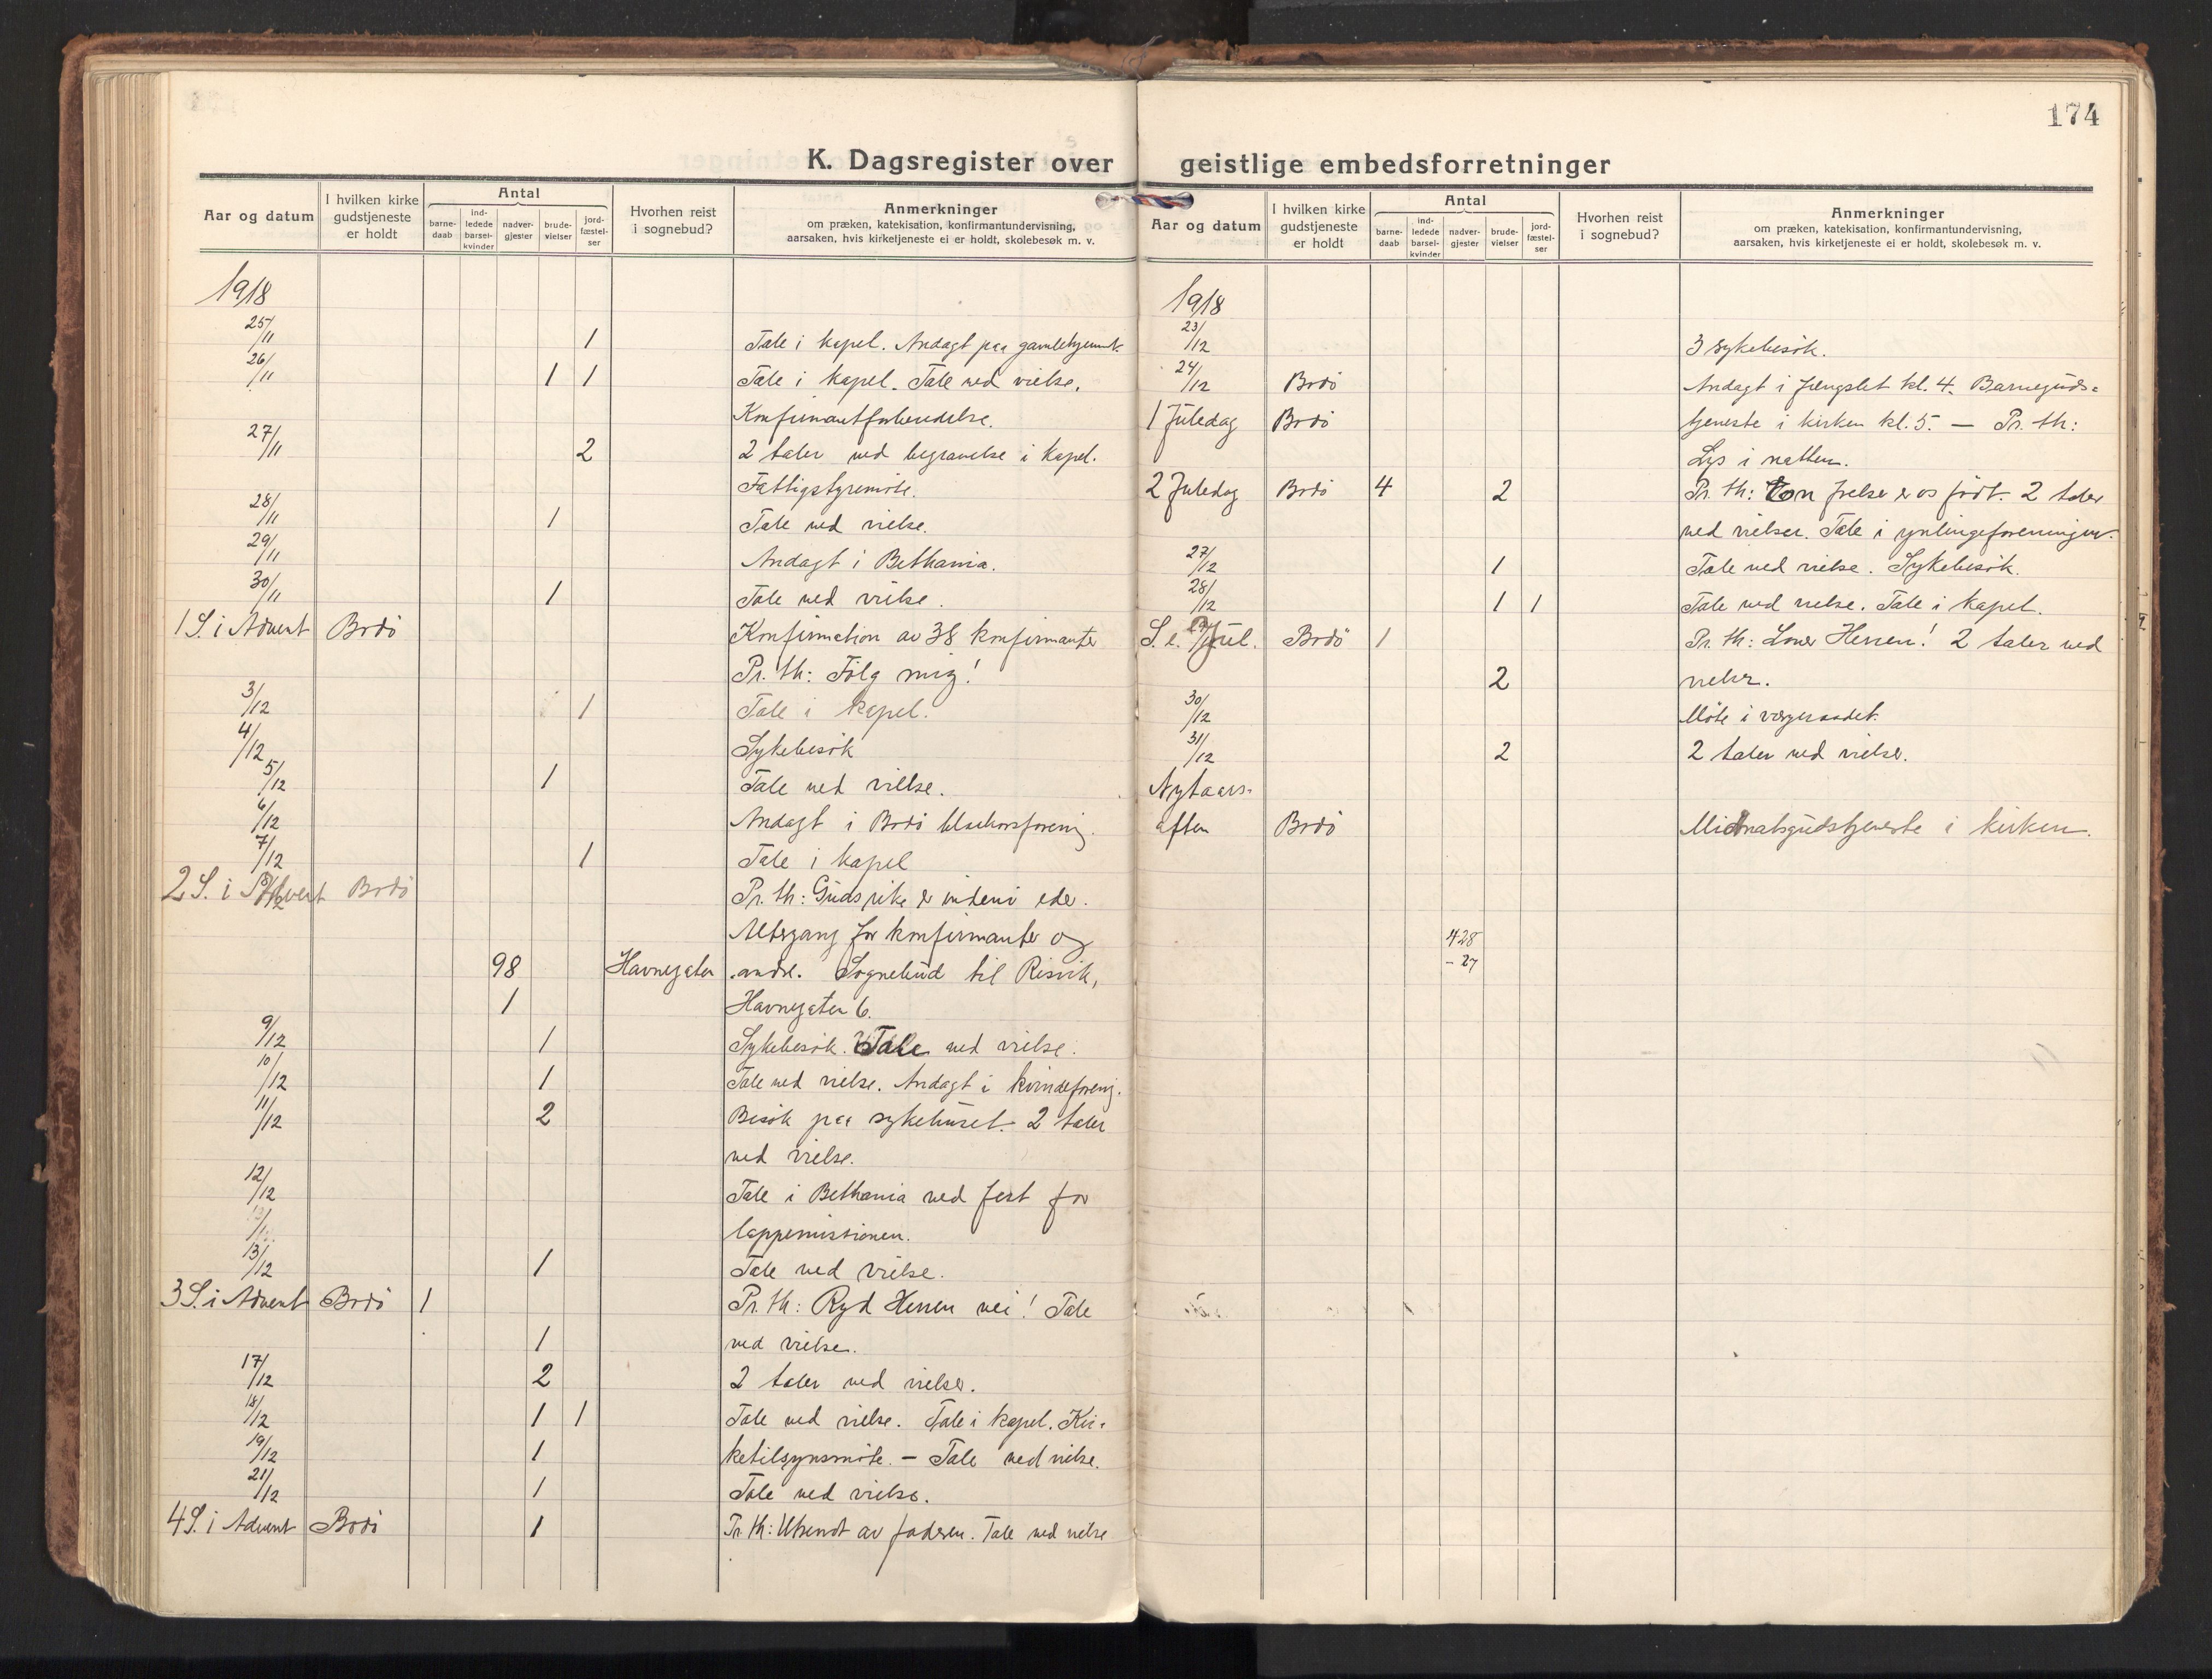 174
K. Dagsregister over geistlige embedsforretninger
Aar og datum
I hvilken kirke gudstjeneste er holdt
Antal
barne-daab
ind-ledede barsel-kvinder
nadver-gjester
brude-vielser
jord-fæstel-ser
Hvorhen reist i sognebud?
Anmerkninger
om præken, katekisation, konfirmantundervisning,
aarsaken, hvis kirketjeneste ei er holdt, skolebesøk m. v.
1918
25/11 1 Tale i kapel. Andagt paa gamlehjemmet.
26/11 1 1 Tale i kapel. Tale ved vielse.
Konfirmantforberedelse.
27/11 2 2 taler ved begravelse i kapel.
Fattigstyremöte.
28/11 1 Tale ved vielse.
29/11 Andagt i Bethania.
30/11 1 Tale ved vielse.
1 S. i Advent Bodö Konfirmation av 38 konfirmanter
Pr. th: Fölg mig!
3/12 1 Tale i kapel.
4/12 Sykebesök
5/12 1 Tale ved vielse.
6/12 Andagt i Bodö blaakorsforening.
7/12 1 Tale i kapel
2 S. i Advent Bodö Pr. th: Guds rike er indeni eder.
Altergang for konfirmanter og
98 Havnegaten andre. Sognebud til Risvik,
1 Havnegaten 6.
9/12 1 Sykebesök. Tale ved vielse.
10/12 1 Tale ved vielse. Andagt i kvindeforening.
11/12 2 Besök paa sykehuset. 2 taler
ved vielse.
12/12 Tale i Bethania ved fest for
lappemissionen.
13/12 1 Tale ved vielse.
3 S. i Advent Bodö 1 Pr. th: Ryd Herren vei! Tale
1 ved vielse.
17/12 2 2 taler ved vielser.
18/12 1 1 Tale ved vielse. Tale i kapel. Kir-
19/12 1 ketilsynsmöte. - Tale ved vielse.
21/12 1 Tale ved vielse.
4 S. i Advent Bodö 1 Pr. th: Utsendt av faderen. Tale ved vielse
Aar og datum
I hvilken kirke gudstjeneste er holdt
Antal
barne-daab
ind-ledede barsel-kvinder
nadver-gjester
brude-vielser
jord-fæstel-ser
Hvorhen reist i sognebud?
Anmerkninger
om præken, katekisation, konfirmantundervisning,
aarsaken, hvis kirketjeneste ei er holdt, skolebesøk m. v.
1918
23/12 3 sykebesök.
24/12 Bodö Andagt i fengslet kl. 4. Barneguds-
1 Juledag Bodö tjeneste i kirken kl. 5. — Pr. th:
Lys i natten.
2 Juledag Bodö 4 2 Pr. th: En frelser er os födt. 2 taler
ved vielser. Tale i ynlingeforeningen.
27/12 1 Tale ved vielse. Sykebesök.
28/12 1 1 Tale ved vielse. Tale i kapel.
S. e. Jul. Bodö 1 Pr. th: Lover Herren! 2 taler ved
2 vielser.
30/12 Möte i vergeraadet.
31/12 2 2 taler ved vielser.
Nytaars-
aften Bodö Midnatsgudstjeneste i kirken.
428
- 27